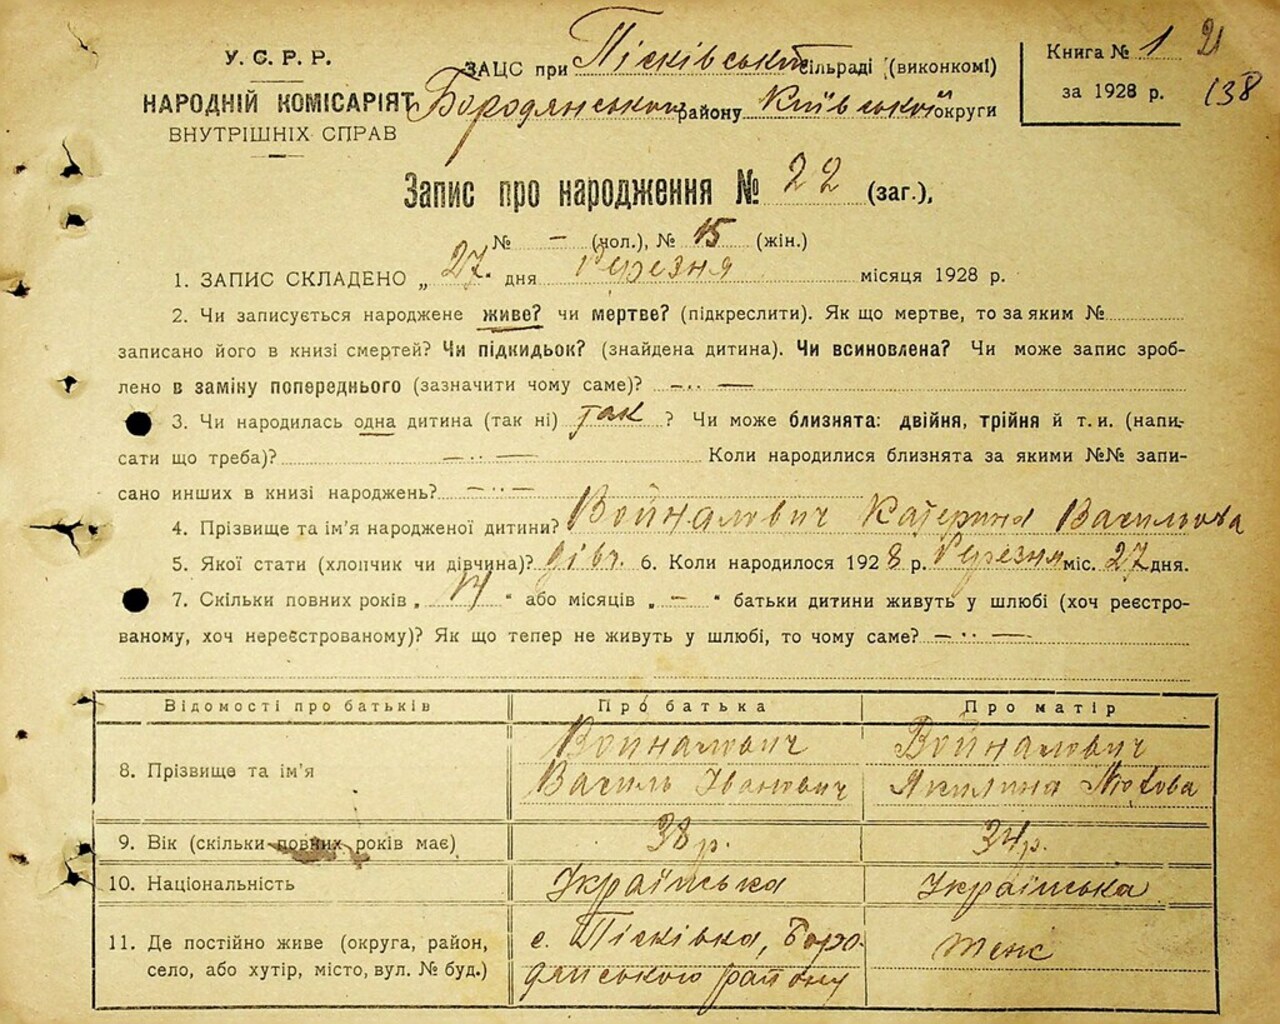 У. С. Р. Р.
НАРОДНІЙ КОМІСАРІЯТ
ВНУТРІШНІХ СПРАВ
ЗАЦС при Пісківській сільраді (виконкомі)
Бородянського району Київської округи
Книга № 1
за 1928 р.
21
138
Запис про народження № 22 (заг.),
№ — (чол.), № 15 (жін.)
1. ЗАПИС СКЛАДЕНО „27" дня березня місяця 1928 р.
2. Чи записується народжене живе? чи мертве? (підкреслити). Як що мертве, то за яким №
записано його в книзі смертей? Чи підкидьок? (знайдена дитина). Чи всиновлена? Чи може запис зроб-
лено в заміну попереднього (зазначити чому саме)? —··—
3. Чи народилась одна дитина (так ні) так ? Чи може близнята: двійня, трійня й т. и. (напи-
сати що треба)? —··— Коли народилися близнята за якими №№ запи-
сано инших в книзі народжень? —··—
4. Прізвище та ім'я народженої дитини? Войналович Катерина Васильова
5. Якої стати (хлопчик чи дівчина)? дівч. 6. Коли народилося 1928 р. березня міс. 27 дня.
7. Скільки повних років „ 14 " або місяців „ — " батьки дитини живуть у шлюбі (хоч реєстро-
ваному, хоч нереєстрованому)? Як що тепер не живуть у шлюбі, то чому саме? —··—
Відомості про батьків Про батька Про матір
8. Прізвище та ім'я Войналович Василь Іванович Войналович Якилина
9. Вік (скільки повних років має) 38 р. 34 р.
10. Національність Українська Українська
11. Де постійно живе (округа, район, с. Пісківка, Боро-
село, або хутір, місто, вул. № буд.) дянського району теж